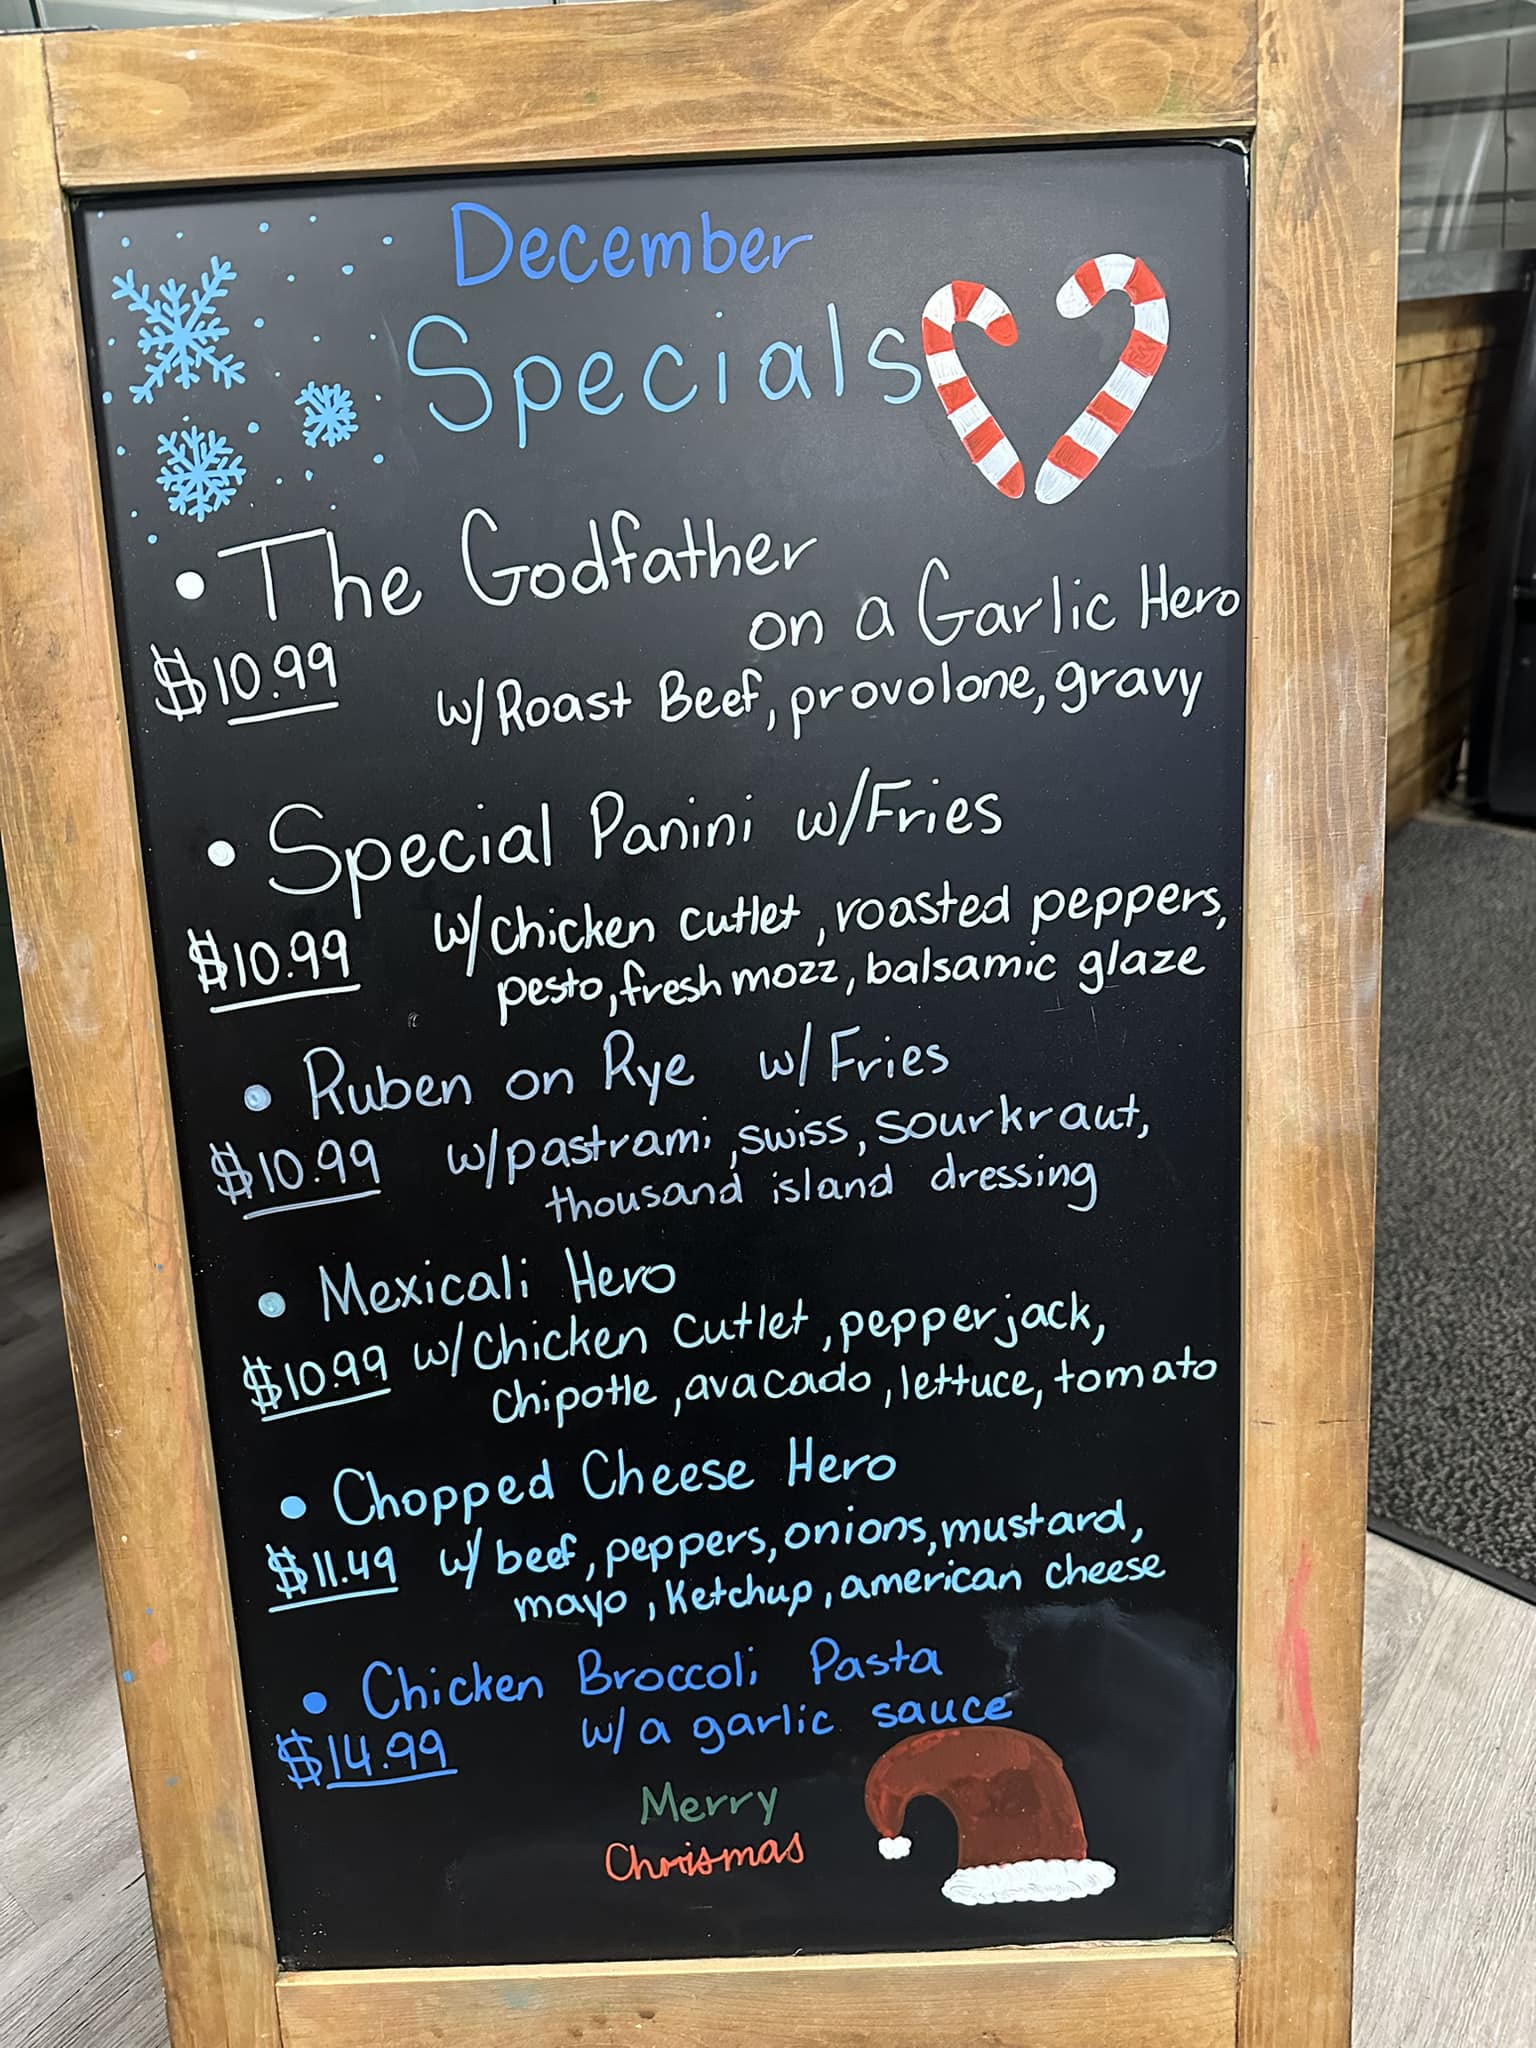 December
Specials
• The Godfather
on a Garlic Hero
$10.99 w/Roast Beef, provolone, gravy
• Special Panini w/Fries
$10.99 w/Chicken cutlet, roasted peppers,
pesto, fresh mozz, balsamic glaze
• Ruben on Rye w/Fries
$10.99 w/pastrami, swiss, sourkraut,
thousand island dressing
• Mexicali Hero
$10.99 w/Chicken Cutlet, pepperjack,
chipotle, avacado, lettuce, tomato
• Chopped Cheese Hero
$11.49 w/beef, peppers, onions, mustard,
mayo, ketchup, american cheese
• Chicken Broccoli Pasta
$14.99 w/a garlic sauce
Merry
Chrismas